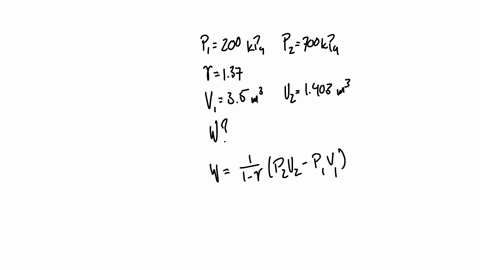 P₁=200 kPa P₂=700 kPa
γ=1.37
V₁=3.5 m³ V₂=1.403 m³
W?
W = 1/(1-γ) (P₂V₂ - P₁V₁)